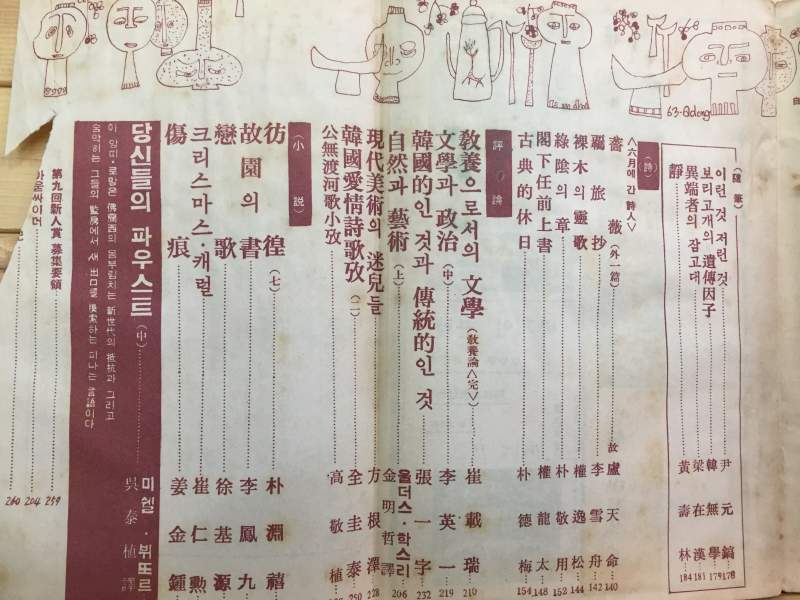 63-Qdong
(隨筆)
이런 것 저런 것 尹元鎬 178
보리고개의 遺傳因子 韓無學 179
異端者의 잠고대 梁在漢 181
靜 黃壽林 184
(詩)
<六月에 간 詩人>
薔薇(外一篇) 故 盧天命 140
覊旅抄 李雪舟 142
裸木의 靈歌 權逸松 144
綠陰의 章 朴敬用 152
閣下任前上書 權龍太 148
古典的休日 朴德梅 154
評論
敎養으로서의 文學(敎養論<完>) 崔載瑞 210
文學과 政治(中) 李英一 219
韓國的인 것과 傳統的인 것 張一字 232
自然과 藝術(上) 올더스·학스리 金明哲譯 206
現代美術의 迷兒들 方根澤 228
韓國愛情詩歌攷(二) 全圭泰 250
公無渡河歌小攷 高敬植
(小說)
彷徨(七) 朴淵禧
故園의 書 李鳳九
戀歌 徐基源
크리스마스·캐럴 崔仁勳
傷痕 姜金鍾
당신들의 파우스트(中) 미셸·뷔또르 吳泰植譯
이 앙띠·로망은 佛蘭西의 몸부림치는 新世代의 抵抗과 그리고
숨막히는 그들의 監房에서 새 出口를 摸索하는 미나는 言語이다
第九回新人賞 募集要領 259
아웃싸이더 204
260